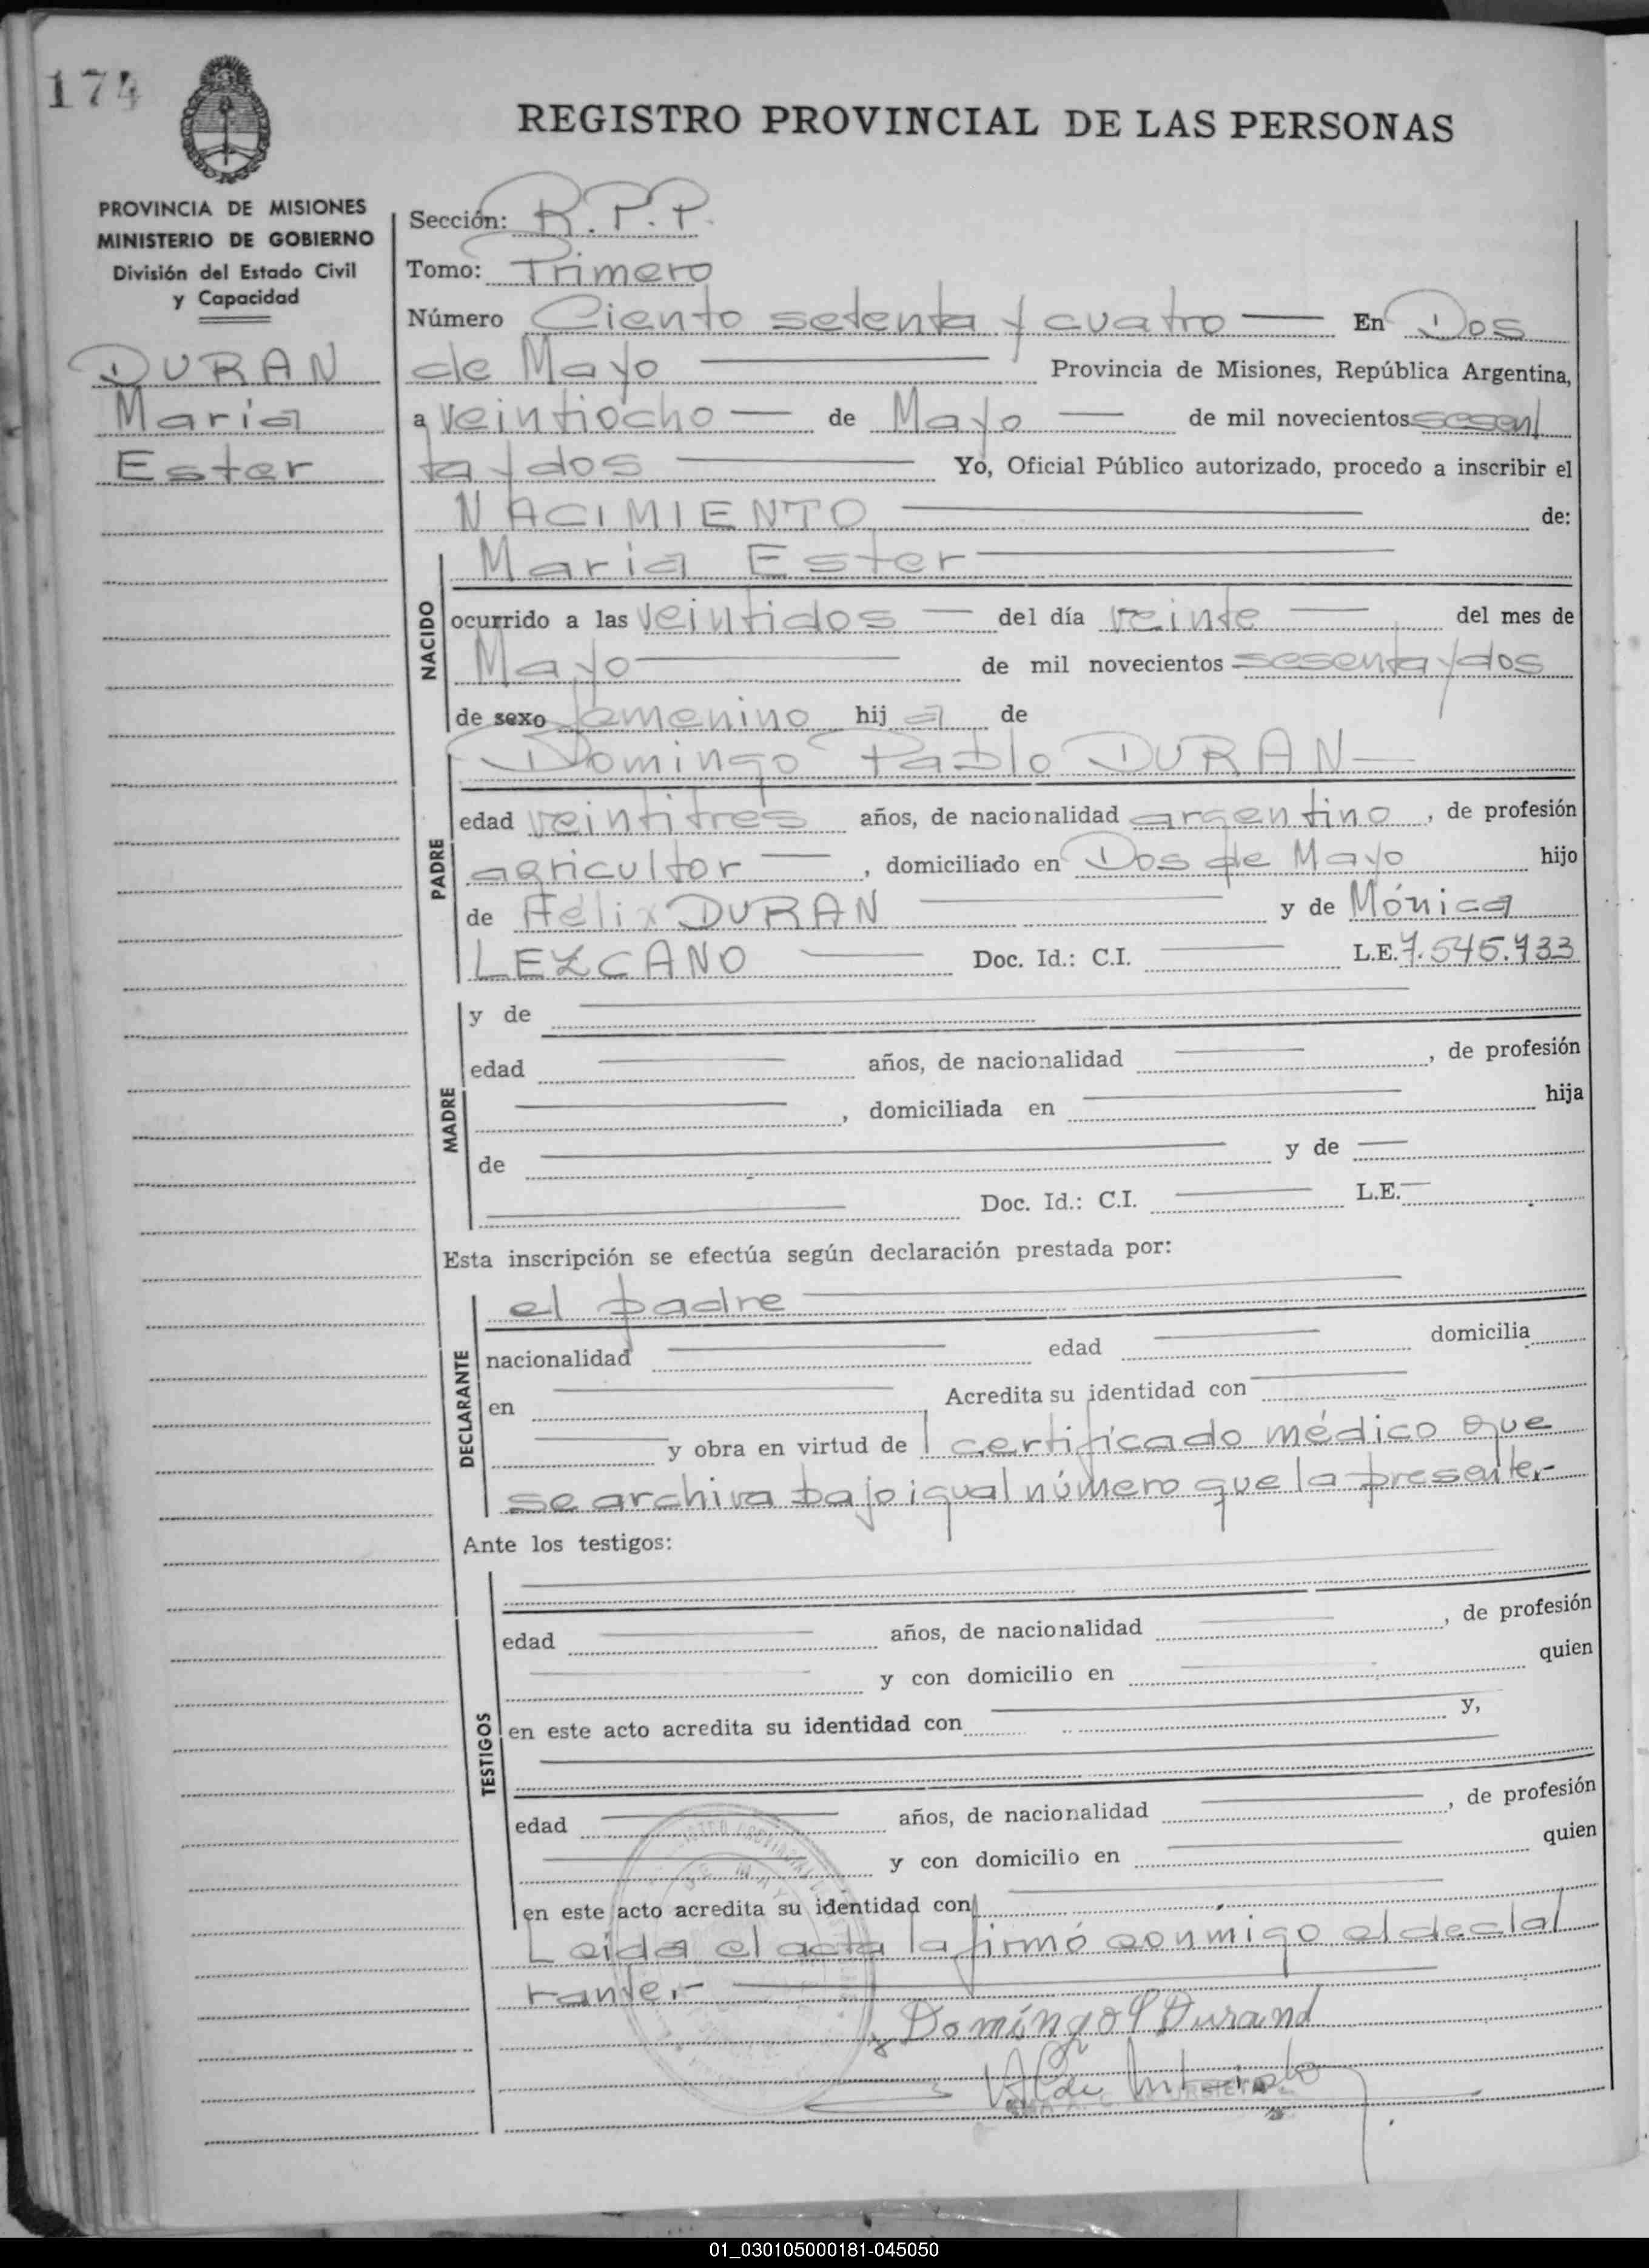 174
REGISTRO PROVINCIAL DE LAS PERSONAS
PROVINCIA DE MISIONES
MINISTERIO DE GOBIERNO
División del Estado Civil
y Capacidad
DURAN
Maria
Ester
Sección: R.P.P.
Tomo: Primero
Número Ciento setenta y cuatro — En Dos
de Mayo — Provincia de Misiones, República Argentina,
a veintiocho — de Mayo — de mil novecientos sesen
ta y dos — Yo, Oficial Público autorizado, procedo a inscribir el
NACIMIENTO — de:
NACIDO
Maria Ester —
ocurrido a las veintidos — del día veinte — del mes de
Mayo — de mil novecientos sesenta y dos
de sexo femenino hij a de
PADRE
Domingo Pablo DURAN —
edad veintitres años, de nacionalidad argentino, de profesión
agricultor —, domiciliado en Dos de Mayo hijo
de Félix DURAN — y de Mónica
LEZCANO — Doc. Id.: C.I. — L.E. 7.545.733
MADRE
y de —
edad — años, de nacionalidad —, de profesión
—, domiciliada en — hija
de — y de —
— Doc. Id.: C.I. — L.E. —
Esta inscripción se efectúa según declaración prestada por:
DECLARANTE
el padre —
nacionalidad — edad — domicilia
en — Acredita su identidad con —
— y obra en virtud de l certificado médico que
se archiva bajo igual número que la presente.-
Ante los testigos:
TESTIGOS
edad — años, de nacionalidad —, de profesión
— y con domicilio en — quien
en este acto acredita su identidad con — y,
edad — años, de nacionalidad —, de profesión
— y con domicilio en — quien
en este acto acredita su identidad con —
Leida el acta la firmó conmigo el decla
rante.- —
x Domingo P Durand
01_030105000181-045050